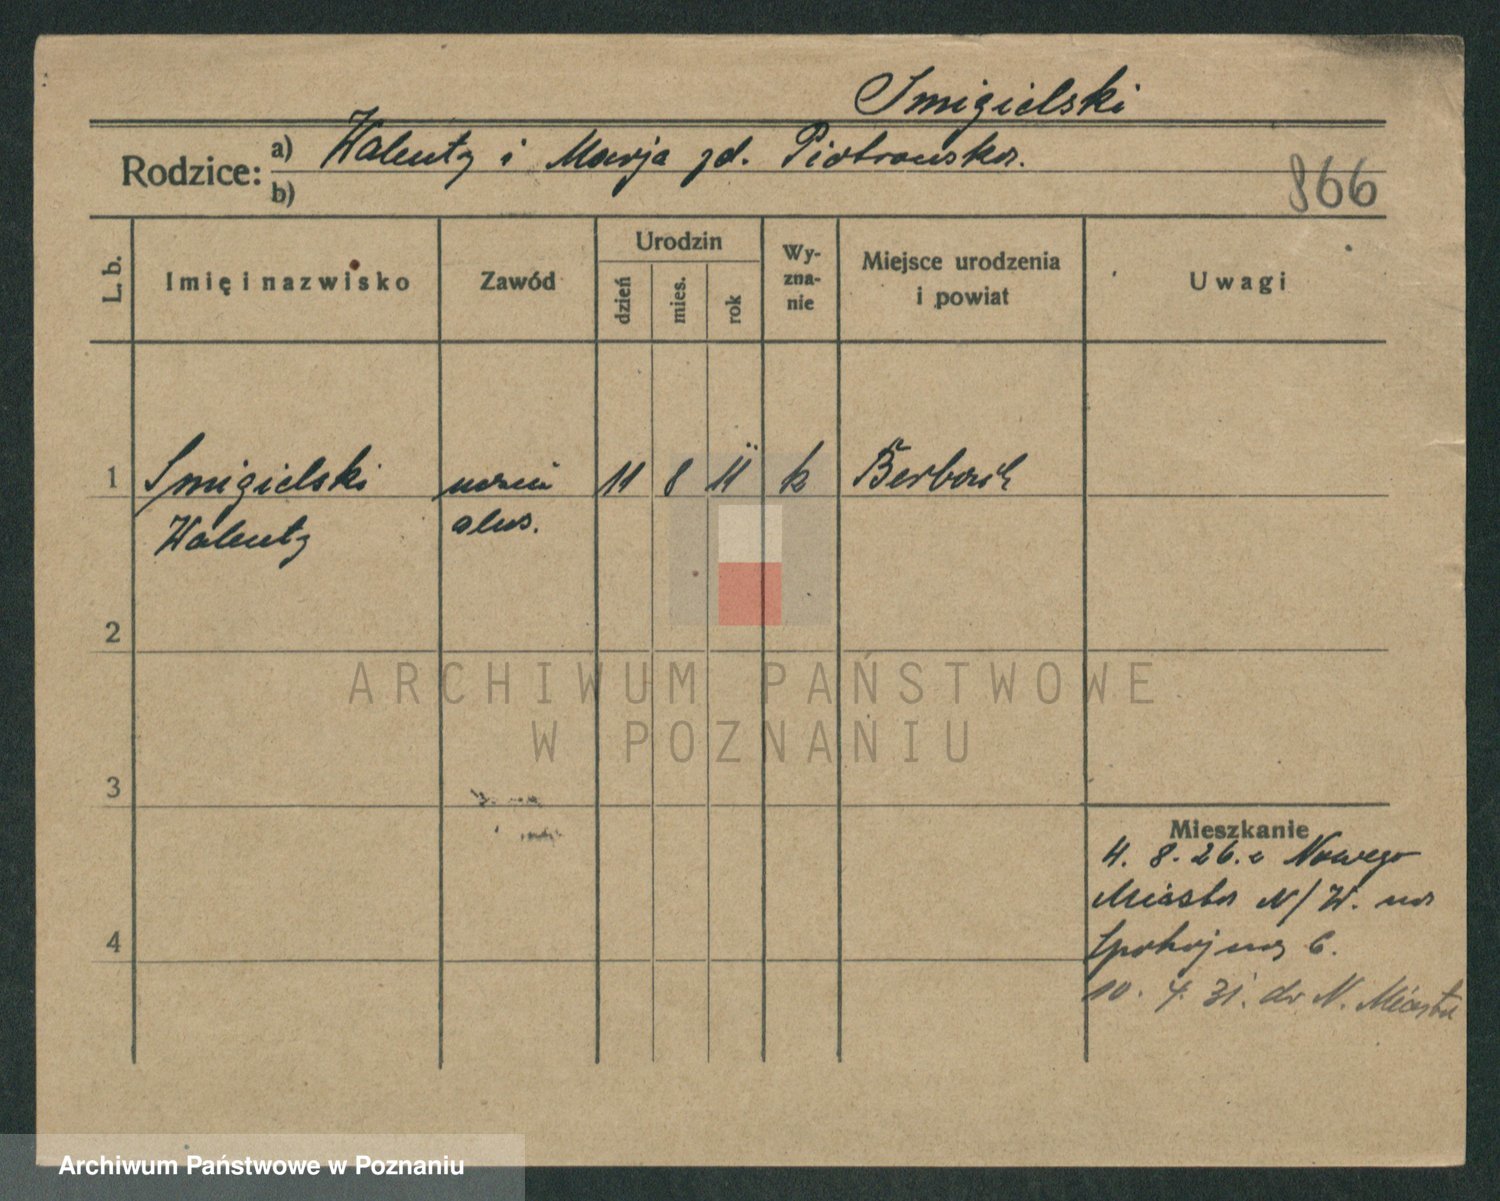 Smigielski
Rodzice: a) Walenty i Marja zd. Piotrowska.
b)
866
L. b. Imię i nazwisko Zawód Urodzin dzień mies. rok Wyznanie Miejsce urodzenia i powiat Uwagi
1 Smigielski uczeń 11 8 11 k
Walenty
2
3
4
Mieszkanie
4. 8. 26. z Nowego
Miasta N/W. na
Spokojna 6.
10. 4. 31. do N. Miasta
ARCHIWUM PAŃSTWOWE
W POZNANIU
Archiwum Państwowe w Poznaniu